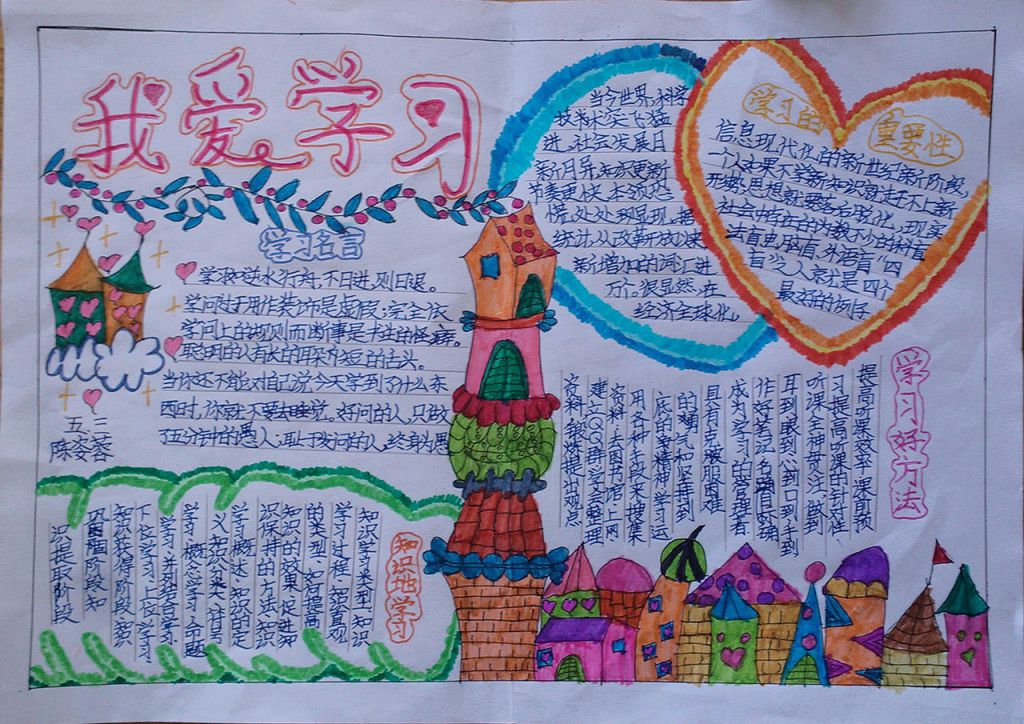 我爱学习
学习名言
学习如逆水行舟，不日进，则日退。
学问过于用作装饰是虚假；完全依
学问上的规则而断事是书生的怪癖。
聪明的人有长的耳朵和短的舌头。
当你还不能对自己说今天学到了什么东
西时，你就不要去睡觉。好问的人，只做
了五分钟的愚人；耻于发问的人，终身为愚
五、三
陈姿蓉
当今世界，科学
技术突飞猛
进，社会发展日
新月异，知识更新
节奏更快，本领恐
慌，处处现显现，据
统计，从改革放以来
新增加的词汇进
万个。很显然，在
经济全球化，
学习的
重要性
信息现代化的新世纪新阶段，
一个人如果不学新知识就赶不上新
形势，思想就要落后退化，现实
社会中存在的为数不少的科盲
法盲电脑盲，外语盲“四
盲”之人家就是四个
最好的例子
学习好方法
提高听课效率，课前预
习提高听课的针对性
听课全神贯注，做到
耳到眼到心到口到手到
作好笔记，名确目的确
成为学习的管理者
具有克服服困难
的勇气和坚持到
底的竞精神，学运
用各种手段来搜集
资料，去图书馆，上网
建立QQ群，学会整理
资料，能够提出观点
知识地学习
知识学习类型，知识
学习过程，知识直观
的类型，如何提高
知识的效果，促进知
识保持的方法，知识
学习概述，知识的定
义，知识分类，符号
学习，概念学习，命题
学习，并列结合学习
下位学习，上位学习
知识获得阶段，知识
巩固阶段，知
识提取阶段